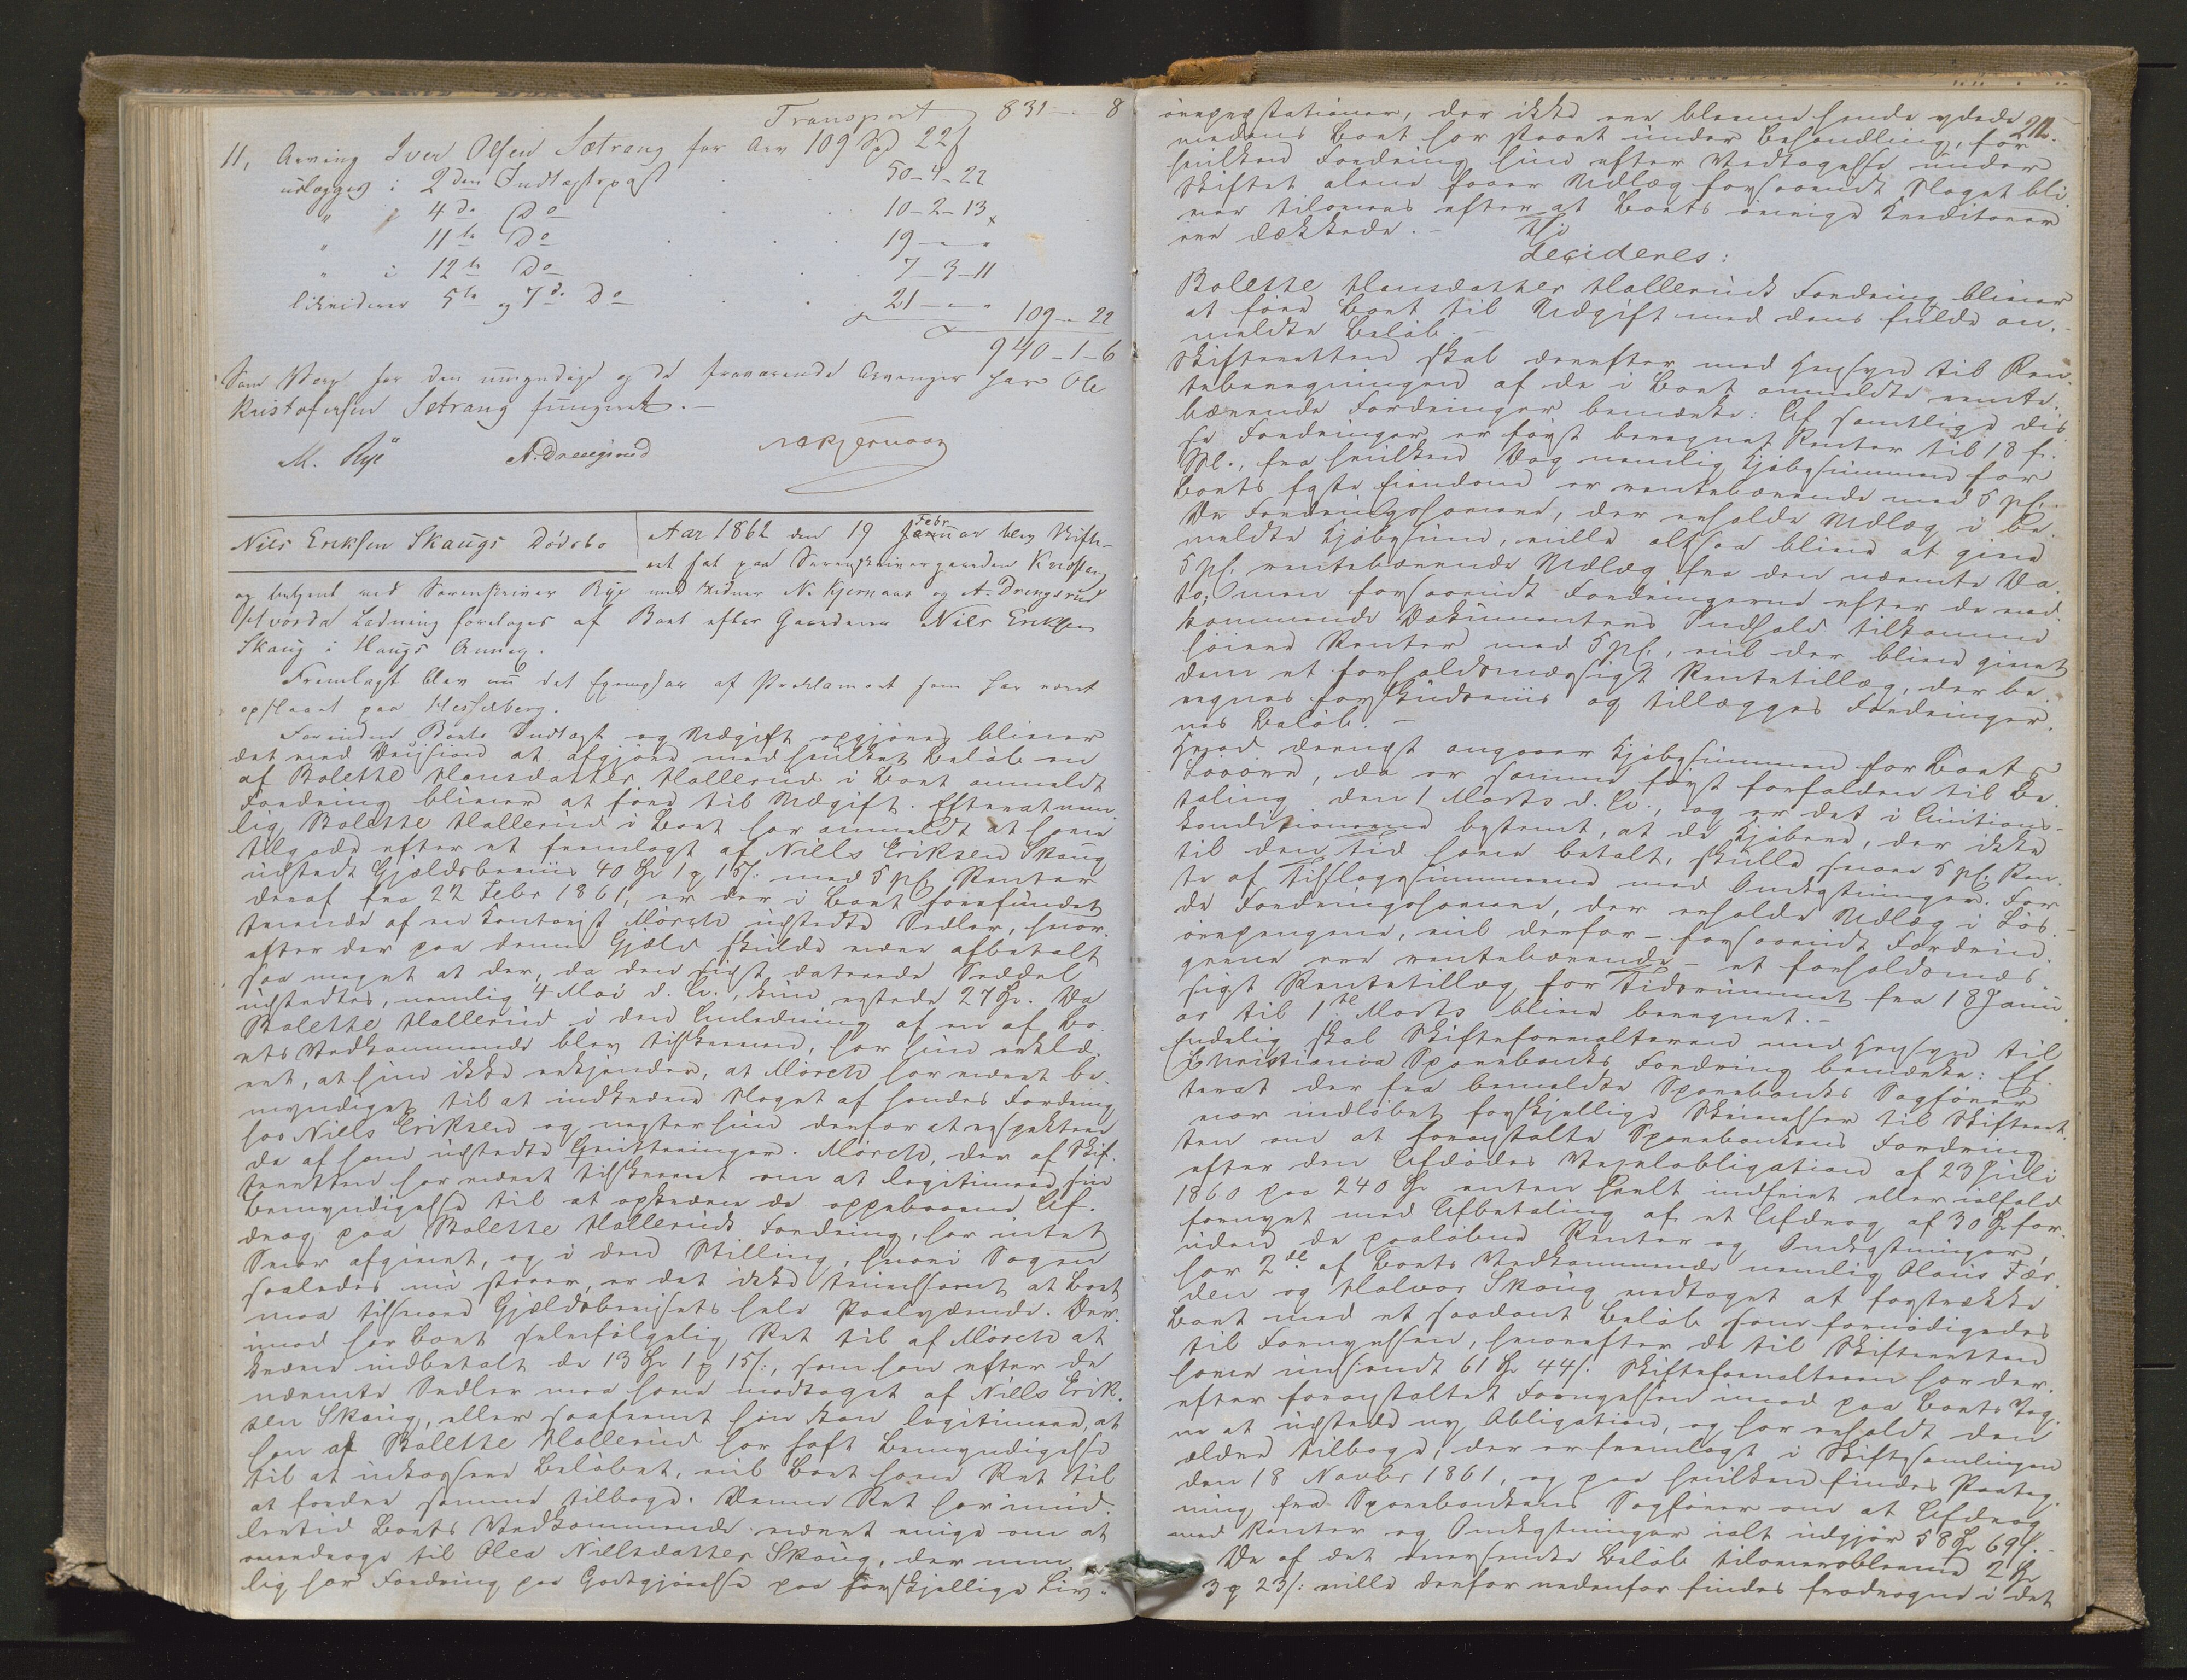 Transport 831 - " - 8
11, Arving Iver Olsen Sætrang for Arv 109 Spd 22 ſ
udlægges i 2den Indtægtspost 50-4-22
" " 4de Do 10-2-13
" 11te Do 19 - " - "
" i 12te Do 7-3-11
likviderer 5te og 7de Do 21 - " - "
109 - " - 22
940-1-6
Som Værge for den umyndige og de fraværende Arvinger har Ole
Kristofersen Setrang fungeret. -
M. Rye A. Drengsrud N Kjernaas
Nils Eriksen Skaugs Dødsbo
Aar 1862 den 19 Febr. Januar blev Skifte-
ret sat paa Sorenskrivergaarden Kvidstang
og betjent ved Sorenskriver Rye med Vidner N. Kjernaas og A. Drengsrud
Hvorda Ladning foretages af Boet efter Gaardmand Nils Eriksen
Skaug i Haugs Annex.
Fremlagt blev nu det Exemplar af Proklamaet som har været
opslaaet paa Hesselberg.
Forinden Boets Indtægt og Udgift opgjøres bliver
det ved Decision at afgjøre med hvilket Beløb en
af Bolette Hansdatter Hallerud i Boet anmeldt
Fordring bliver at føre til Udgift. Efterat nem-
lig Bolette Hallerud i Boet har anmeldt at have
tilgode efter et fremlagt af Niels Eriksen Skaug
udstedt Gjældsbeviis 40 Spd 1 ₰ 15 ſ: med 5 pCt Renter
deraf fra 22 Febr 1861, er der i Boet forefundet
tvende af en Kontorist Mörch udstedte Sedler, hvor-
efter der paa denne Gjæld skulde være afbetalt
saa meget at der, da den sidst daterede Seddel
udstedtes, nemlig 4 Mai d. A., kun restede 27 Spd. Da
Bolette Hallerud i den Anledning af en af Bo-
ets Vedkommende blev tilskreven, har hun erklæ-
ret, at hun ikke erkjender, at Mörch har været be-
myndiget til at indkræve Noget af hendes Fordring
hos Niels Eriksen og negter hun derfor at respektere
de af ham udstedte Qvitteringer. Mörch, der af Skif-
teretten har været tilskrevet om at legitimere sin
Bemyndigelse til at opkræve de oppebaarne Af-
drag paa Bolette Halleruds Fordring, har intet
Svar afgivet, og i den Stilling, hvori Sagen
saaledes nu staaer, er det ikke tvivlsomt at Boet
maa tilsvare Gjældsbevisets hele Paalydende. Der-
imod har Boet selvfølgelig Ret til af Mörch at
kræve indbetalt de 13 Spd 1 ₰ 15 ſ:, som han efter de
nævnte Sedler maa have modtaget af Niels Erik-
sen Skaug, eller saafremt han kan legitimere, at
han af Bolette Hallerud har havt Bemyndigelse
til at inkassere Beløbet, vil Boet have Ret til
at fordre samme tilbage. Denne Ret har imid-
lertid Boets Vedkommende været enige om at
overdrage til Olea Nielsdatter Skaug, der nem-
lig har Fordring paa Godtgjørelse paa forskjellige Liv-
212.
ørepræstationer, der ikke ere blevne hende ydede
medens Boet har staaet under Behandling, for
hvilken Fordring hun efter Vedtagelse under
Skiftet alene faaer Udlæg forsaavidt Noget bli-
ver tilovers efter at Boets øvrige Kreditorer
ere dækkede. -
Thi
decideres:
Bolette Hansdatter Halleruds Fordring bliver
at føre Boet til Udgift med dens fulde an-
meldte Beløb. -
Skifteretten skal derefter med Hensyn til Ren-
teberegningen af de i Boet anmeldte rente-
bærende Fordringer bemærke: Af samtlige dis-
se Fordringer er først beregnet Renter til 18 f.
M., fra hvilken Dag nemlig Kjøbesummen for
Boets faste Eiendom er rentebærende med 5 pCt.
De Fordringshavere, der erholde Udlæg i be-
meldte Kjøbesum, ville altsaa blive at give
5 pCt. rentebærende Udlæg fra den nævnte Da-
to; men forsaavidt Fordringerne efter de ved-
kommende Dokumenters Indhold tilkomme
høiere Renter end 5 pCt., vil der blive givet
dem et forholdsmæssigt Rentetillæg, der be-
regnes forskudsviis og tillægges Fordringer-
nes Beløb. -
Hvad dernæst angaaer Kjøbesummen for Boets
Løsøre, da er samme først forfalden til Be-
taling den 1 Marts d. A., og er det i Auktions-
konditionerne bestemt, at de Kjøbere, der ikke
til den Tid have betalt, skulle svare 5 pCt. Ren-
te af Tilslagssummerne med Omkostninger. For
de Fordringshavere, der erholde Udlæg i Løs-
ørepengene, vil derfor - forsaavidt Fordrin-
gerne ere rentebærende - et forholdsmæs-
sigt Rentetillæg for Tidsrummet fra 18 Janu-
ar til 1te Marts blive beregnet. -
Endelig skal Skifteforvalteren med Hensyn til
Christiania Sparebanks Fordring bemærke: Ef-
terat der fra bemeldte Sparebanks Sagfører
var indløbet forskjellige Skrivelser til Skifteret-
ten om at foranstalte Sparebankens Fordring
efter den Afdødes Vexelobligation af 23 Juli
1860 paa 240 Spd enten heelt indfriet eller ialfald
fornyet med Afbetaling af et Afdrag af 30 Spd for-
uden de paaløbne Renter og Omkostninger,
har 2de af Boets Vedkommende nemlig Olaus Fær-
den og Halvor Skaug vedtaget at forstrække
Boet med et saadant Beløb som fornødigedes
til Fornyelsen, hvorefter de til Skifteretten
have indsendt 61 Spd 44 ſ: Skifteforvalteren har der-
efter foranstaltet Fornyelsen imod paa Boets Veg-
ne at udstede ny Obligation, og har erholdt den
ældre tilbage, der er fremlagt i Skiftesamlingen
den 18 Novbr 1861, og paa hvilken findes Paateg-
ning fra Sparebankens Sagfører om at Afdrag
med Renter og Omkostninger ialt udgjør 58 Spd 69 ſ. -
De af det oversendte Beløb tiloversblevne 2 Spd
3 ₰ 23 ſ: ville derfor nedenfor findes fradragne i det